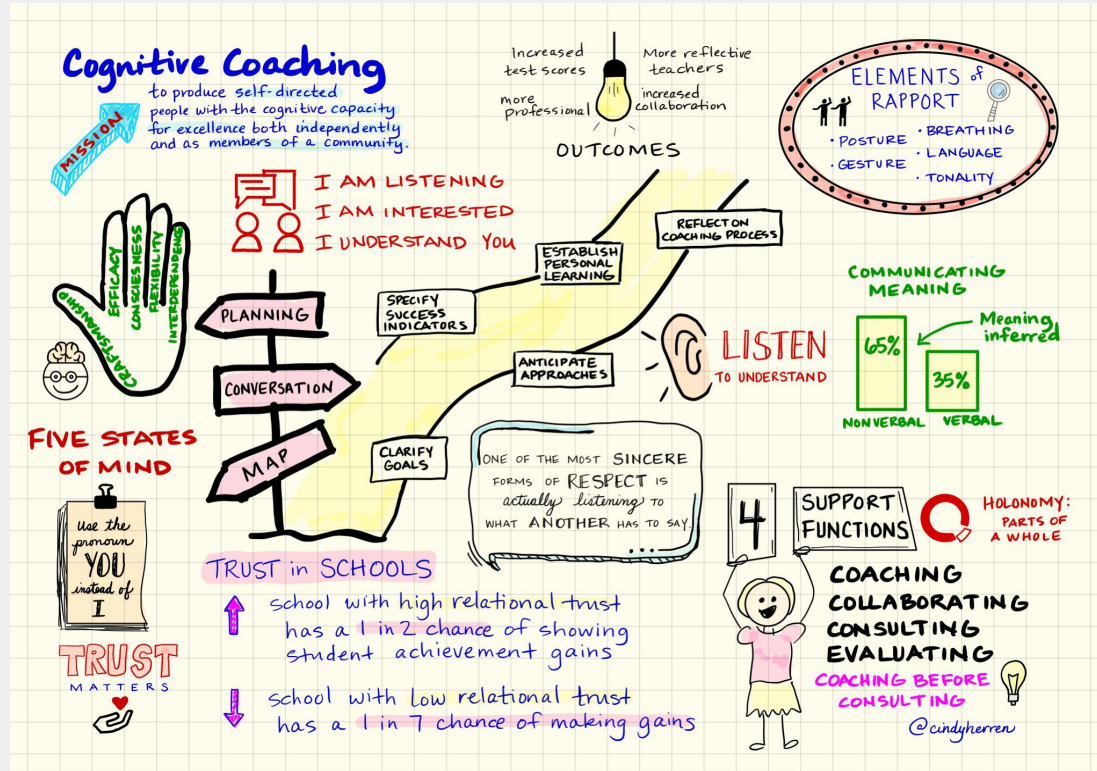 Cognitive Coaching
MISSION
to produce self-directed
people with the cognitive capacity
for excellence both independently
and as members of a community.
Increased
test scores
More reflective
teachers
more
professional
increased
collaboration
OUTCOMES
ELEMENTS of
RAPPORT
• POSTURE
• GESTURE
• BREATHING
• LANGUAGE
• TONALITY
I AM LISTENING
I AM INTERESTED
I UNDERSTAND YOU
CRAFTSMANSHIP
EFFICACY
CONSCIESNESS
FLEXIBILITY
INTERDEPENDENCE
FIVE STATES
OF MIND
PLANNING
CONVERSATION
MAP
REFLECT ON
COACHING PROCESS
ESTABLISH
PERSONAL
LEARNING
SPECIFY
SUCCESS
INDICATORS
ANTICIPATE
APPROACHES
CLARIFY
GOALS
LISTEN
TO UNDERSTAND
COMMUNICATING
MEANING
Meaning
inferred
65%
35%
NONVERBAL
VERBAL
ONE OF THE MOST SINCERE
FORMS OF RESPECT IS
actually listening TO
WHAT ANOTHER HAS TO SAY.
use the
pronoun
YOU
instead of
I
TRUST
MATTERS
TRUST in SCHOOLS
school with high relational trust
has a 1 in 2 chance of showing
student achievement gains
school with Low relational trust
has a 1 in 7 chance of making gains
4
SUPPORT
FUNCTIONS
HOLONOMY:
PARTS OF
A WHOLE
COACHING
COLLABORATING
CONSULTING
EVALUATING
COACHING BEFORE
CONSULTING
@cindyherren